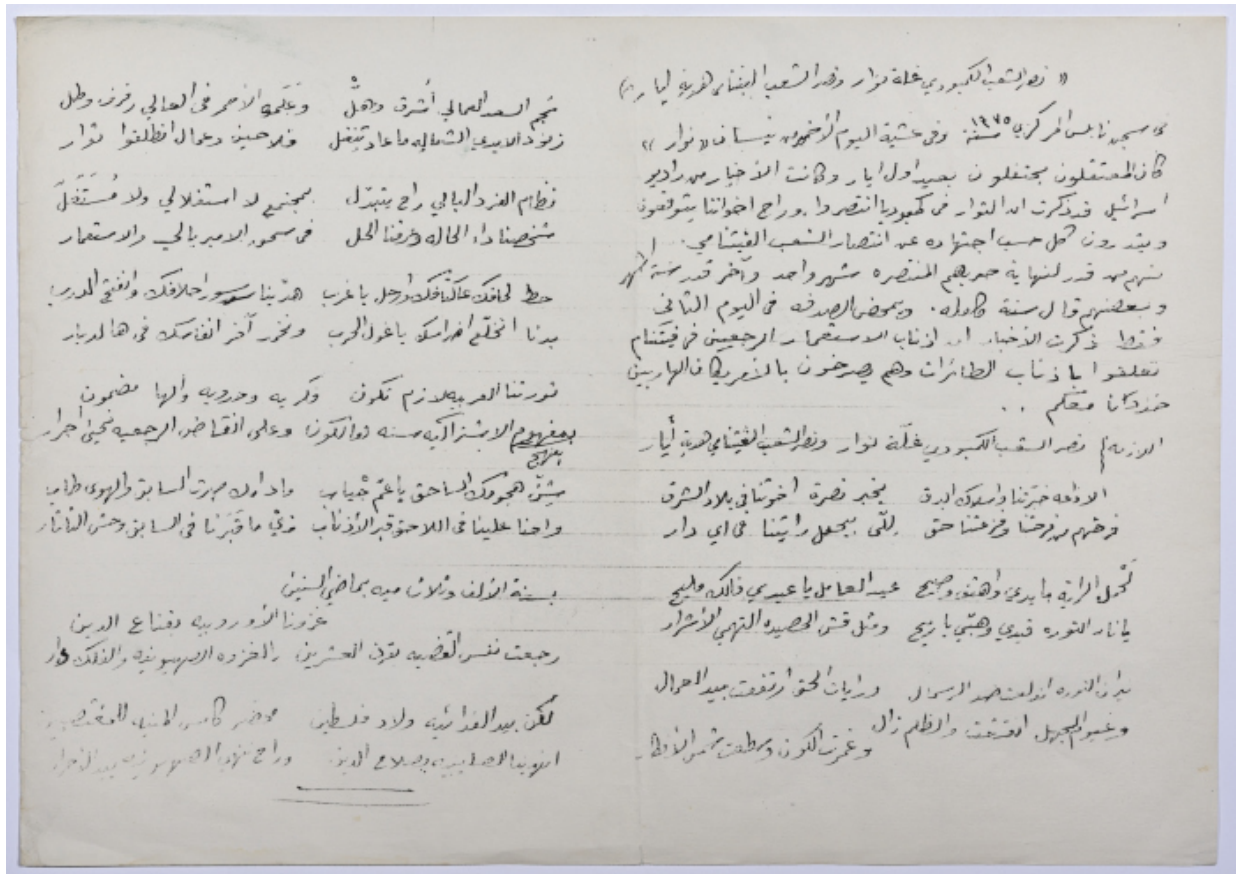 « نصر الشعب الكمبودي غلة نوار ونصر الشعب الفيتنامي هدية أيار »
في سجن نابلس المركزي سنة ١٩٧٥ وفي عشية اليوم الأخير من نيسان « نوار »
كان المعتقلون يحتفلون بعيد اول ايار وكانت الأخبار من راديو
اسرائيل قد ذكرت ان الثوار في كمبوديا انتصروا. وراح اخواننا يتوقعون
ويقدرون كل حسب اجتهاده عن انتصار الشعب الفيتنامي.
منهم من قدر لنهاية حربهم المنتصره شهر واحد وآخر قدر ستة اشهر
وبعضهم قال سنة كامله. وبمحض الصدفه في اليوم الثاني
فقط ذكرت الأخبار ان اذناب الاستعمار الرجعيين في فيتنام
تعلقوا باذناب الطائرات وهم يصرخون بالأمريكان الهاربين
خذونا معكم . .
اللازمه / نصر الشعب الكمبودي غلّة نوار ونصر الشعب الفيتنامي هدية أيار
الاذاعه خبرتنا واسلاك البرق بخبر نصرة اخوتنا في بلاد الشرق
فرحتهم من فرحتنا وفرحتنا حق للّي بيحمل رايتنا في اي دار
تحمل الرايه بايدي واهتف وصيح عيد العامل يا عيدي فالك مليح
يا نار الثوره قيدي وهبّي يا ريح ومثل قش الحصيده التهمي الأشرار
نيران الثوره اندلعت ضد الرسمال ورايات الحق ارتفعت بيد العمال
وغيوم الجهل انقشعت والظلم زال وغمرت الكون وسطعت شمس الأفكار
نجم السعد العمالي أشرق وهلّ وعَلَمه الأحمر في العالي رفرف وطل
زنود الايدي الشغاله ما عاد تنغل فلاحين وعمال انطلقوا ثوار
نظام الفرد البالي راح يتبدّل بمجتمع لا استغلالي ولا مُستَغَلّ
شخصنا داء الحاله وعرفنا الحل في سحور الامبريالي والاستعمار
حط لحافك عاكتافك وارحل يا غرب هدّينا سور احلافك وانفتح الدرب
بدنا انخلّع اضراسك يا غول الحرب ونحرر آخر انفاسك في هالديار
ثورتنا العربيه لازم تكون فكريه وحدويه والها مضمون
بمفهوم الاشتراكيه سنه هالكون وعلى انقاض الرجعيه نحيى احرار
شنّ هجومك الساحق يا عمّ جياب وادولف صرت السابق والهوى طاب
واحنا علينا في اللاحق قبر الأذناب زيّ ما قبَرنا في السابق وحش التاتار
بسنة الألف وثلاث ميه بماضي السنين
غزونا الأوروبيه بقناع الدين
رجعت نفس القضيه بقرن العشرين بالغزوه الصهيونيه والفلك دار
لكن بيد الفدائيه ولاد فلسطين محضر كاس المنيه للمغتصبين
انهينا الصليبيه بصلاح الدين وراح ننهي الصهيونيه بيد الأحرار